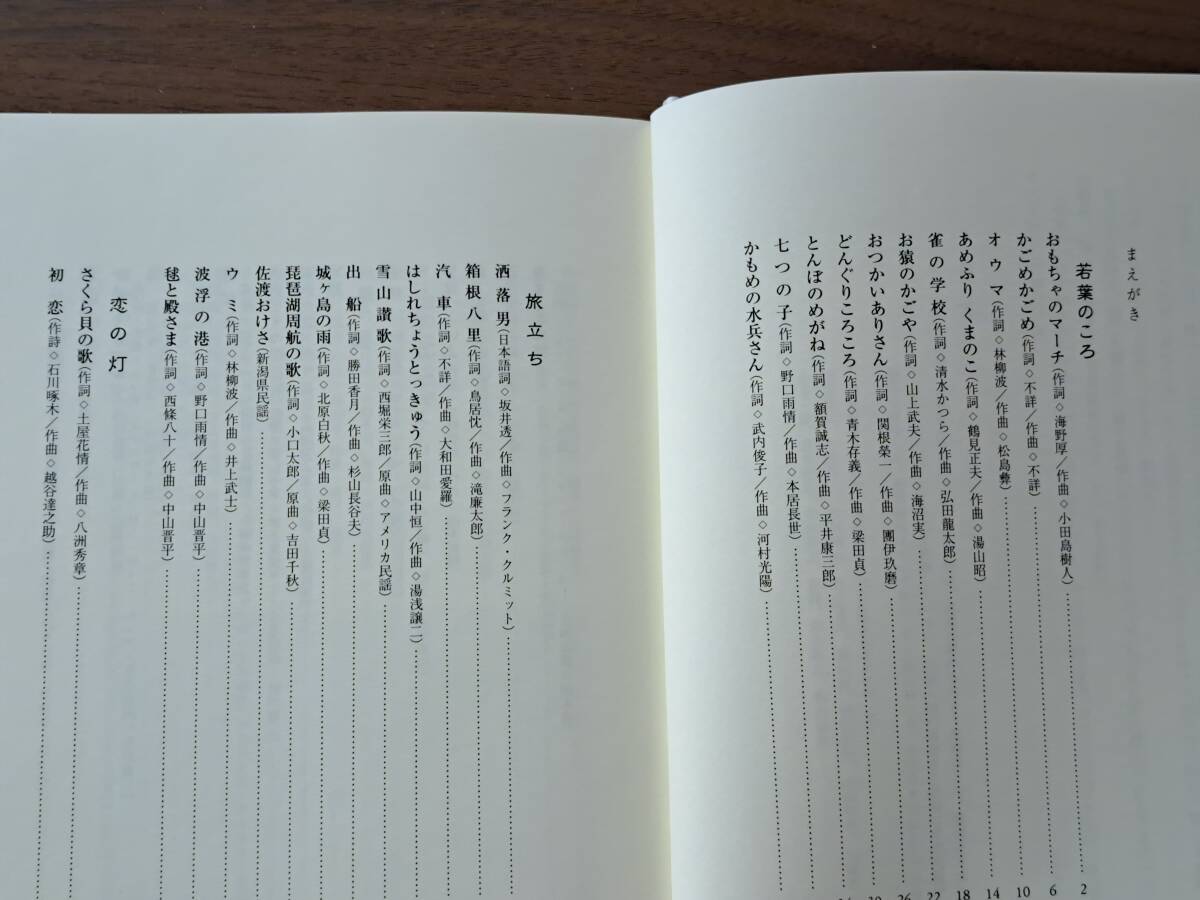 まえがき
若葉のころ
おもちゃのマーチ（作詞◇海野厚／作曲◇小田島樹人）……2
かごめかごめ（作詞◇不詳／作曲◇不詳）……6
オウマ（作詞◇林柳波／作曲◇松島彝）……10
あめふり くまのこ（作詞◇鶴見正夫／作曲◇湯山昭）……14
雀の学校（作詞◇清水かつら／作曲◇弘田龍太郎）……18
お猿のかごや（作詞◇山上武夫／作曲◇海沼実）……22
おつかいありさん（作詞◇関根榮一／作曲◇團伊玖磨）……26
どんぐりころころ（作詞◇青木存義／作曲◇梁田貞）……
とんぼのめがね（作詞◇額賀誠志／作曲◇平井康三郎）……
七つの子（作詞◇野口雨情／作曲◇本居長世）……
かもめの水兵さん（作詞◇武内俊子／作曲◇河村光陽）……
旅立ち
洒落男（日本語詞◇坂井透／作曲◇フランク・クルミット）……
箱根八里（作詞◇鳥居忱／作曲◇滝廉太郎）……
汽車（作詞◇不詳／作曲◇大和田愛羅）……
はしれちょうとっきゅう（作詞◇山中恒／作曲◇湯浅譲二）……
雪山讃歌（作詞◇西堀栄三郎／原曲◇アメリカ民謡）……
出船（作詞◇勝田香月／作曲◇杉山長谷夫）……
城ヶ島の雨（作詞◇北原白秋／作曲◇梁田貞）……
琵琶湖周航の歌（作詞◇小口太郎／原曲◇吉田千秋）……
佐渡おけさ（新潟県民謡）……
ウミ（作詞◇林柳波／作曲◇井上武士）……
波浮の港（作詞◇野口雨情／作曲◇中山晋平）……
毬と殿さま（作詞◇西條八十／作曲◇中山晋平）……
恋の灯
さくら貝の歌（作詞◇土屋花情／作曲◇八洲秀章）……
初恋（作詩◇石川啄木／作曲◇越谷達之助）……